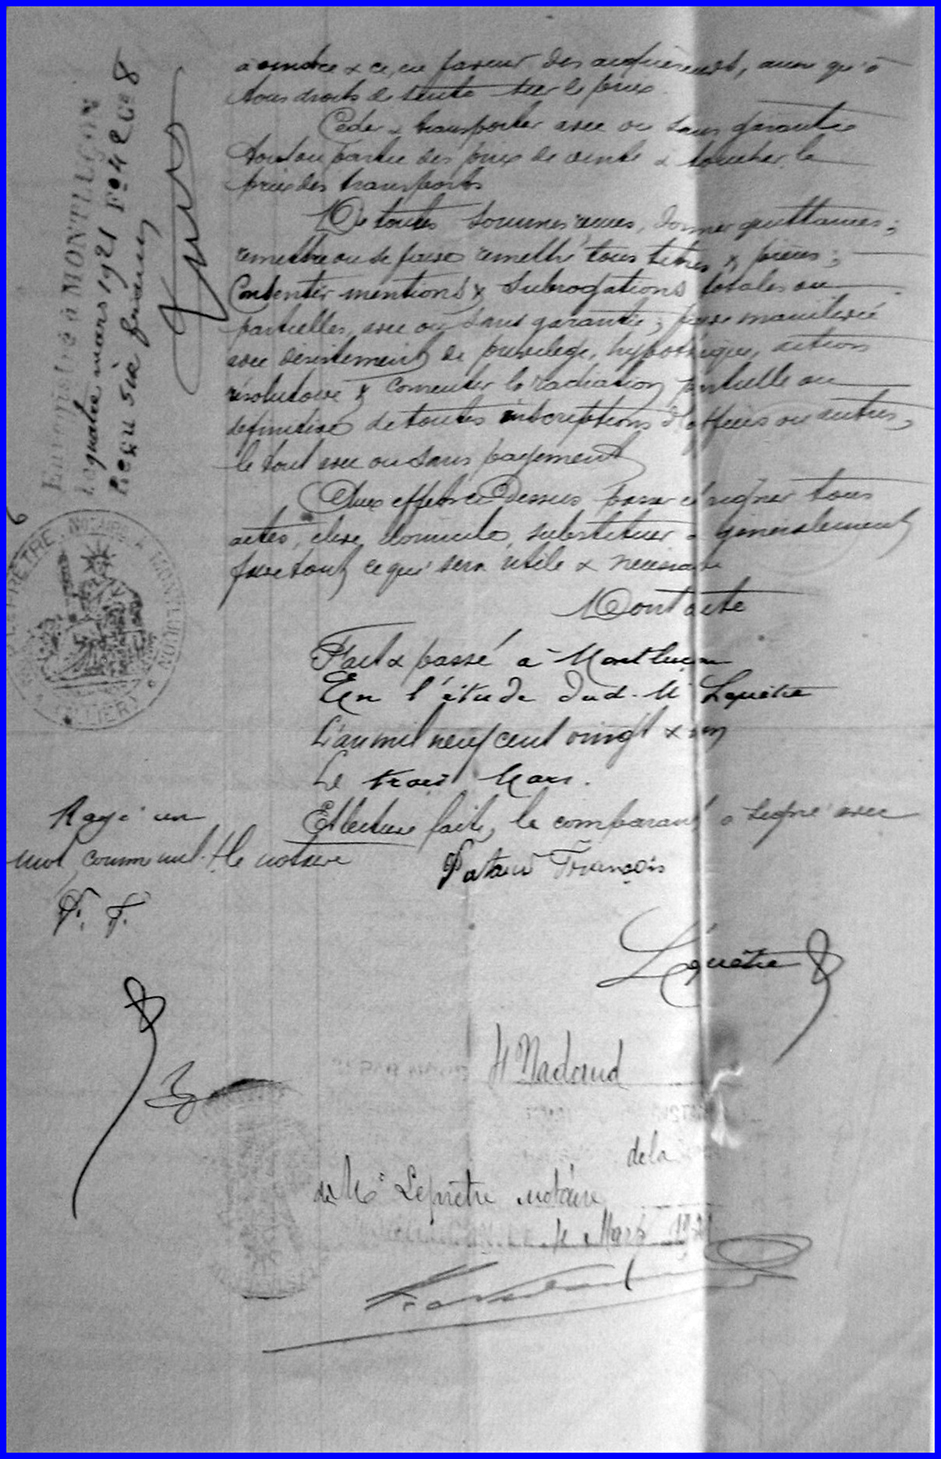 à vendre & ce, en faveur des acquéreurs, ainsi qu'à
tous droits de sur le prix.
Céder & transporter avec ou sans garantie
tout ou partie des prix de vente & toucher le
prix des transports
De toutes sommes reçues, donner quittances ;
remettre ou se faire remettre tous titres & pièces ;
Consentir mentions & subrogations totales ou
partielles, avec ou sans garantie ; faire mainlevée
avec désistement de privilège, hypothèque, action
résolutoire & consentir la radiation partielle ou
définitive de toutes inscriptions d'offices ou autres,
le tout avec ou sans payement
Aux effets ci-dessus passer et signer tous
actes, élire domicile, substituer & généralement
faire tout ce qui sera utile & nécessaire
Dont acte
Fait & passé à Montluçon
En l'étude dud. Me Leprêtre
L'an mil neuf cent vingt & un
Le trois Mars.
Et lecture faite, le comparant a signé avec
le notaire
Rayé un
mot comme nul.
F. F.
François
Leprêtre
Enregistré à MONTLUÇON
Le quatre mars 1921 Fo 42 Co 8
Reçu six francs
LEPRÊTRE, NOTAIRE À MONTLUÇON
* ALLIER *
H Nadaud
de la
de Me Leprêtre notaire
LE 4 Mars 1921